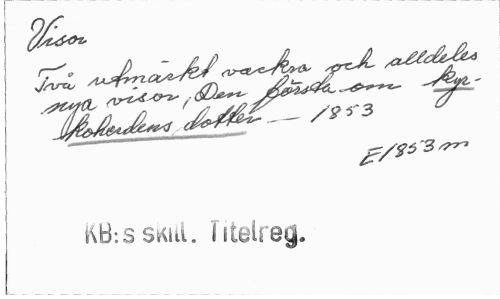 Visor
Två utmärkt vackra och alldeles
nya visor, Den första om kyr-
koherdens dotter — 1853
E1853m
KB:s skill. Titelreg.